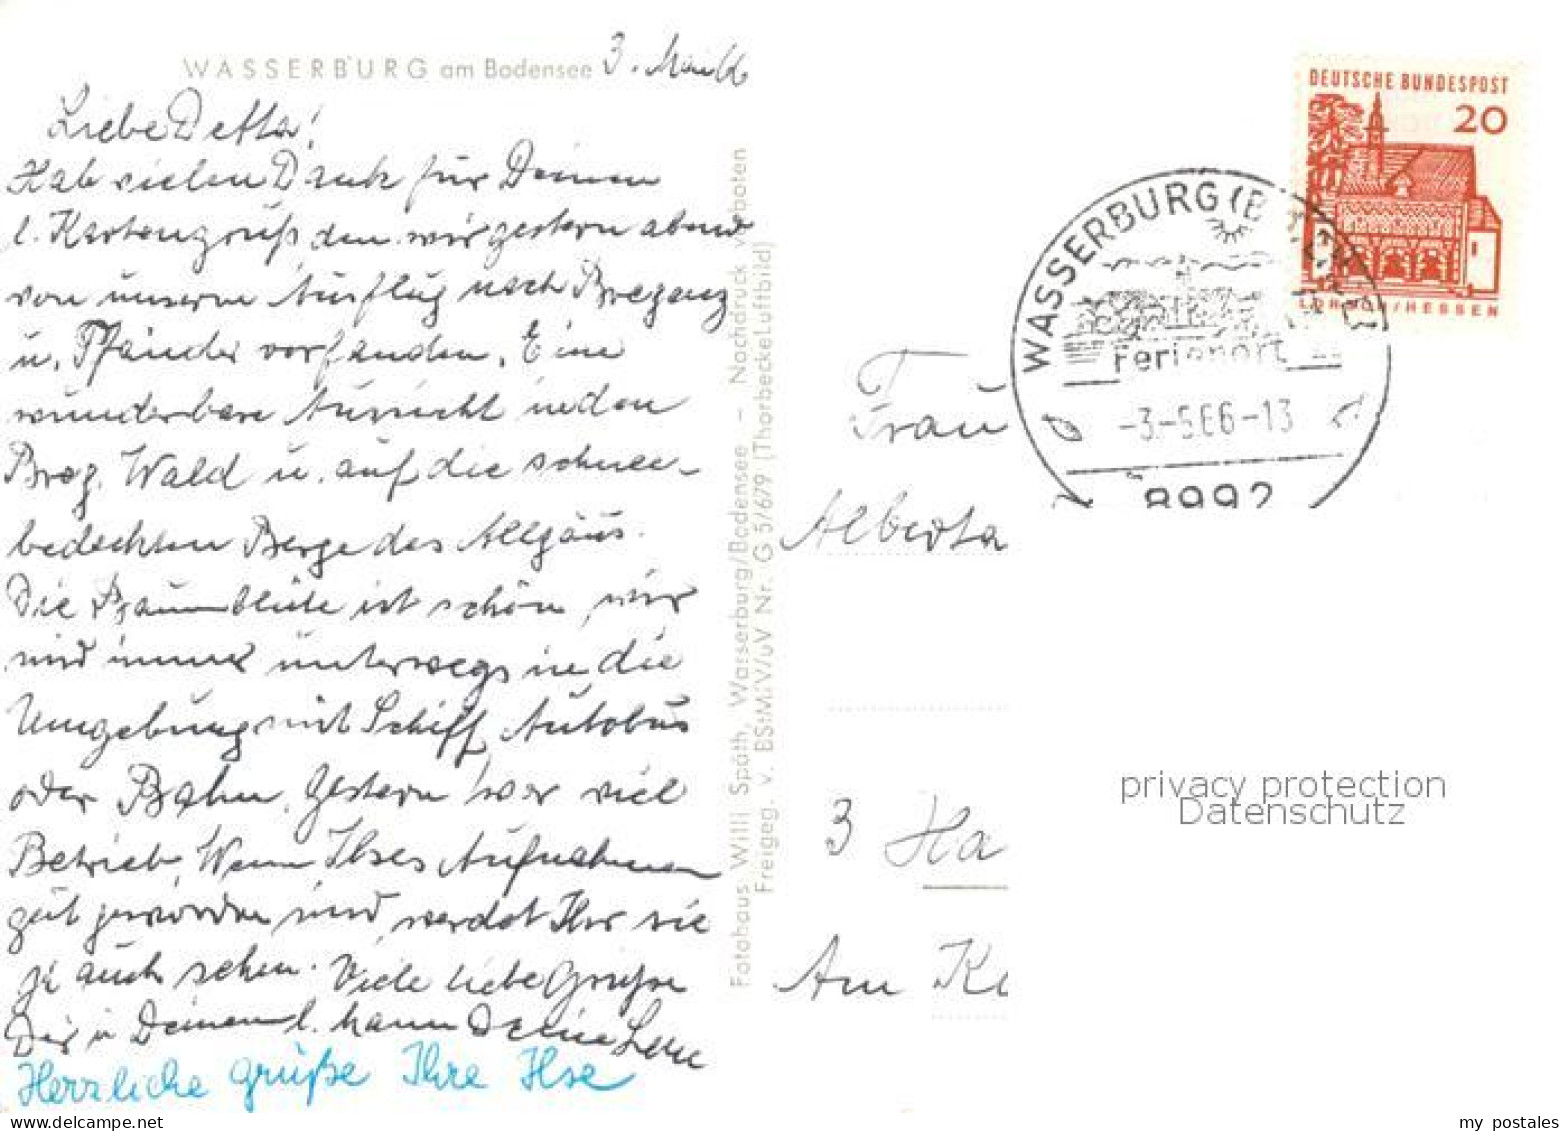 WASSERBURG am Bodensee 3. Mai 66
Liebe Detta!
Hab vielen Dank für Deinen
l. Kartengruß den wir gestern abend
von unserm Ausflug nach Bregenz
u. Pfänder vorfanden. Eine
wunderbare Aussicht in den
Breg. Wald u. auf die schnee-
bedeckten Berge des Allgäus.
Die Baumblüte ist schön, wir
sind immer unterwegs in die
Umgebung mit Schiff, Autobus
oder Bahn. Gestern war viel
Betrieb. Wenn Ilses Aufnahmen
gut geworden sind, werdet Ihr sie
ja auch sehen. Viele liebe Grüße
Dir u Deinem l. Mann Deine Lene
Herzliche Grüße Ihre Ilse
Fotohaus Willi Späth, Wasserburg/Bodensee - Nachdruck verboten
Freigeg. v. BStMiV/uV Nr. G 5/679 (Thorbecke Luftbild)
DEUTSCHE BUNDESPOST
20
LORSCH/HESSEN
WASSERBURG (B
Ferienort
-3.-5.66-13
8992
Frau
Alberta
3 Ha
Am
privacy protection
Datenschutz
my postales